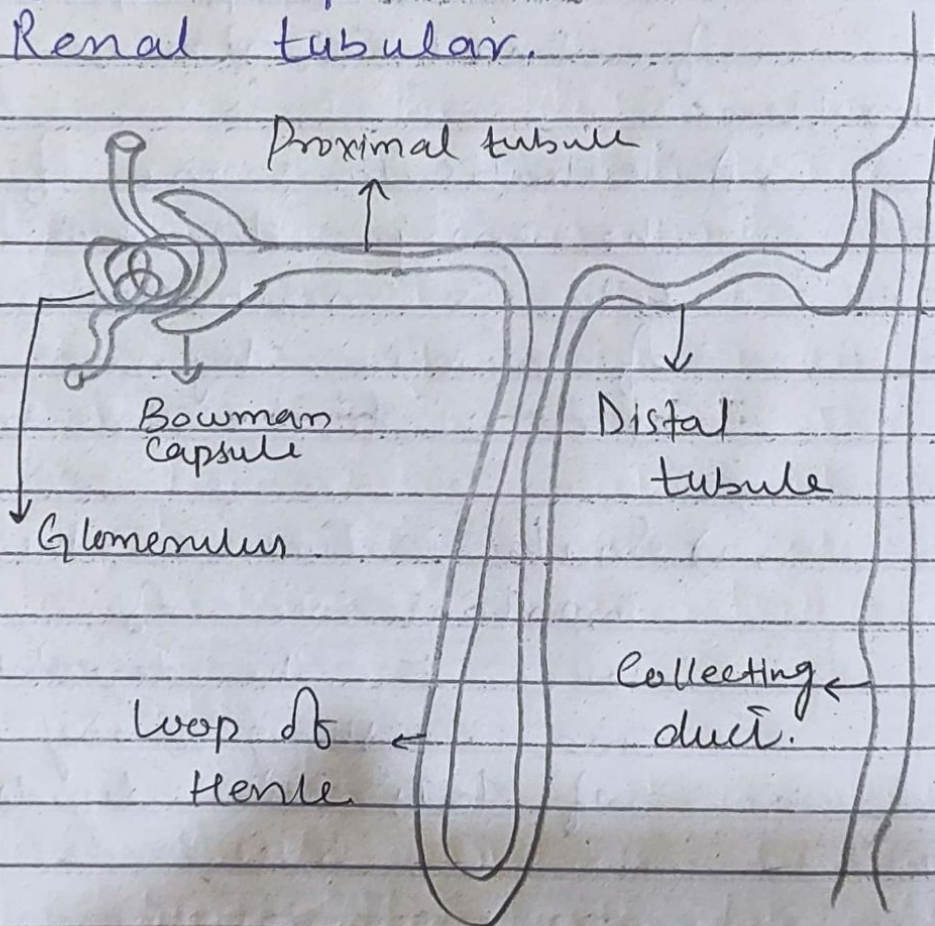 Renal tubular.
Proximal tubule
Bowman
Capsule
Distal
tubule
Glomenulus
Collecting
duct.
Loop of
Henle.